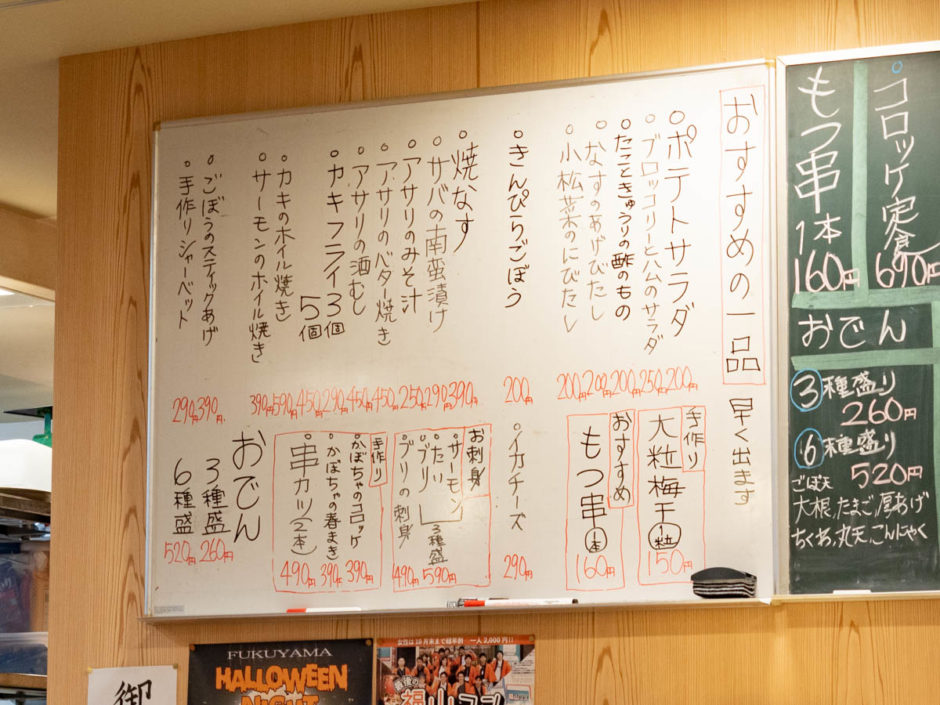 おすすめの一品 早く出ます
○ポテトサラダ 200円
○ブロッコリーとハムのサラダ 250円
○たこときゅうりの酢のもの 200円
○なすのあげびたし 200円
○小松菜のにびたし 200円
○きんぴらごぼう 200円
○焼なす 390円
○サバの南蛮漬け 290円
○アサリのみそ汁 250円
○アサリのバター焼き 450円
○アサリの酒むし 450円
○カキフライ3個 290円
5個 450円
○カキのホイル焼き 590円
○サーモンのホイル焼き 390円
○ごぼうのスティックあげ 390円
○手作りシャーベット 290円
手作り
大粒梅干 1粒 150円
おすすめ
もつ串 1本 160円
○イカチーズ 290円
お刺身
○サーモン
○たい
○ブリ
3種盛 590円
○ブリの刺身 490円
手作り
○かぼちゃのコロッケ 390円
○かぼちゃの春まき 390円
○串カツ(2本) 490円
おでん
3種盛 260円
6種盛 520円
○コロッケ定食 690円
もつ串 1本 160円
おでん
③種盛り
260円
⑥種盛り
520円
ごぼ天
大根、たまご、厚あげ
ちくわ、丸天、こんにゃく
御
FUKUYAMA
HALLOWEEN
NIGHT